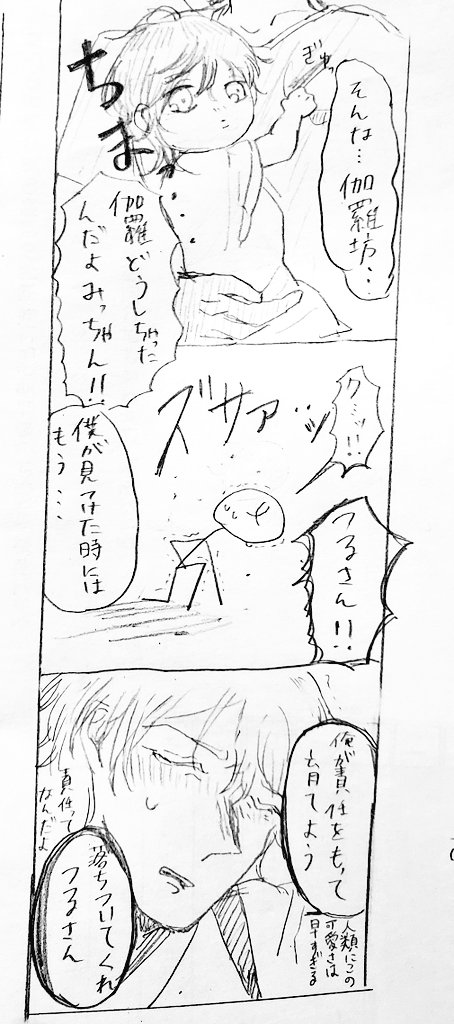 ぎゅっ
そんな…
伽羅坊‥
ちま
伽羅どうしちゃった
んだよみっちゃん!!
クミッ!!
ズサアッ
僕が見つけた時には
もう‥‥
つるさん!!
俺が責任をもって
育てよう
人類にこの
可愛さは
早すぎる
責任って
なんだよ
落ちついてくれ
つるさん